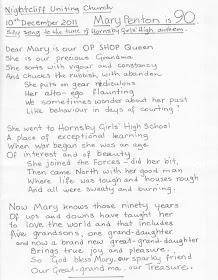 Nightcliff Uniting Church
10th December 2011 Mary Penton is 90.
Silly song to the tune of Hornsby Girls' High anthem.
Dear Mary is our OP SHOP Queen
She is our precious Grandma
She sorts with vigour and constancy
And chucks the rubbish with abandon
She puts on gear ridiculous
Her alto-ego flaunting
We sometimes wonder about her past
Like behaviour in days of courting!
She went to Hornsby Girls' High School
A place of exceptional learning
When war began she was an age
Of interest and of beauty
She joined the Forces - did her bit,
Then came North with her good man
Where life was tough and houses rough
And all were sweaty and burning.
Now Mary knows those ninety years
Of ups and downs have taught her
to love the world and that includes
five grandsons, one grand-daughter
and now a brand new great-grand-daughter
Brings true joy and pleasure
So God bless Mary, our sparky friend
Our Great-grand ma, our Treasure.